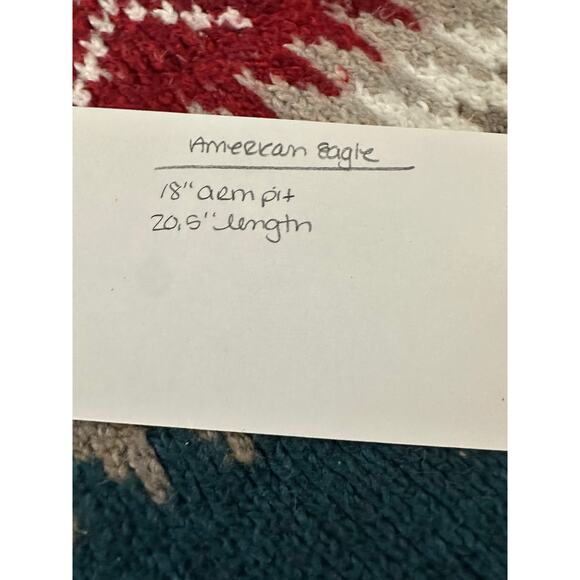 American Eagle
18" arm pit
20.5" length